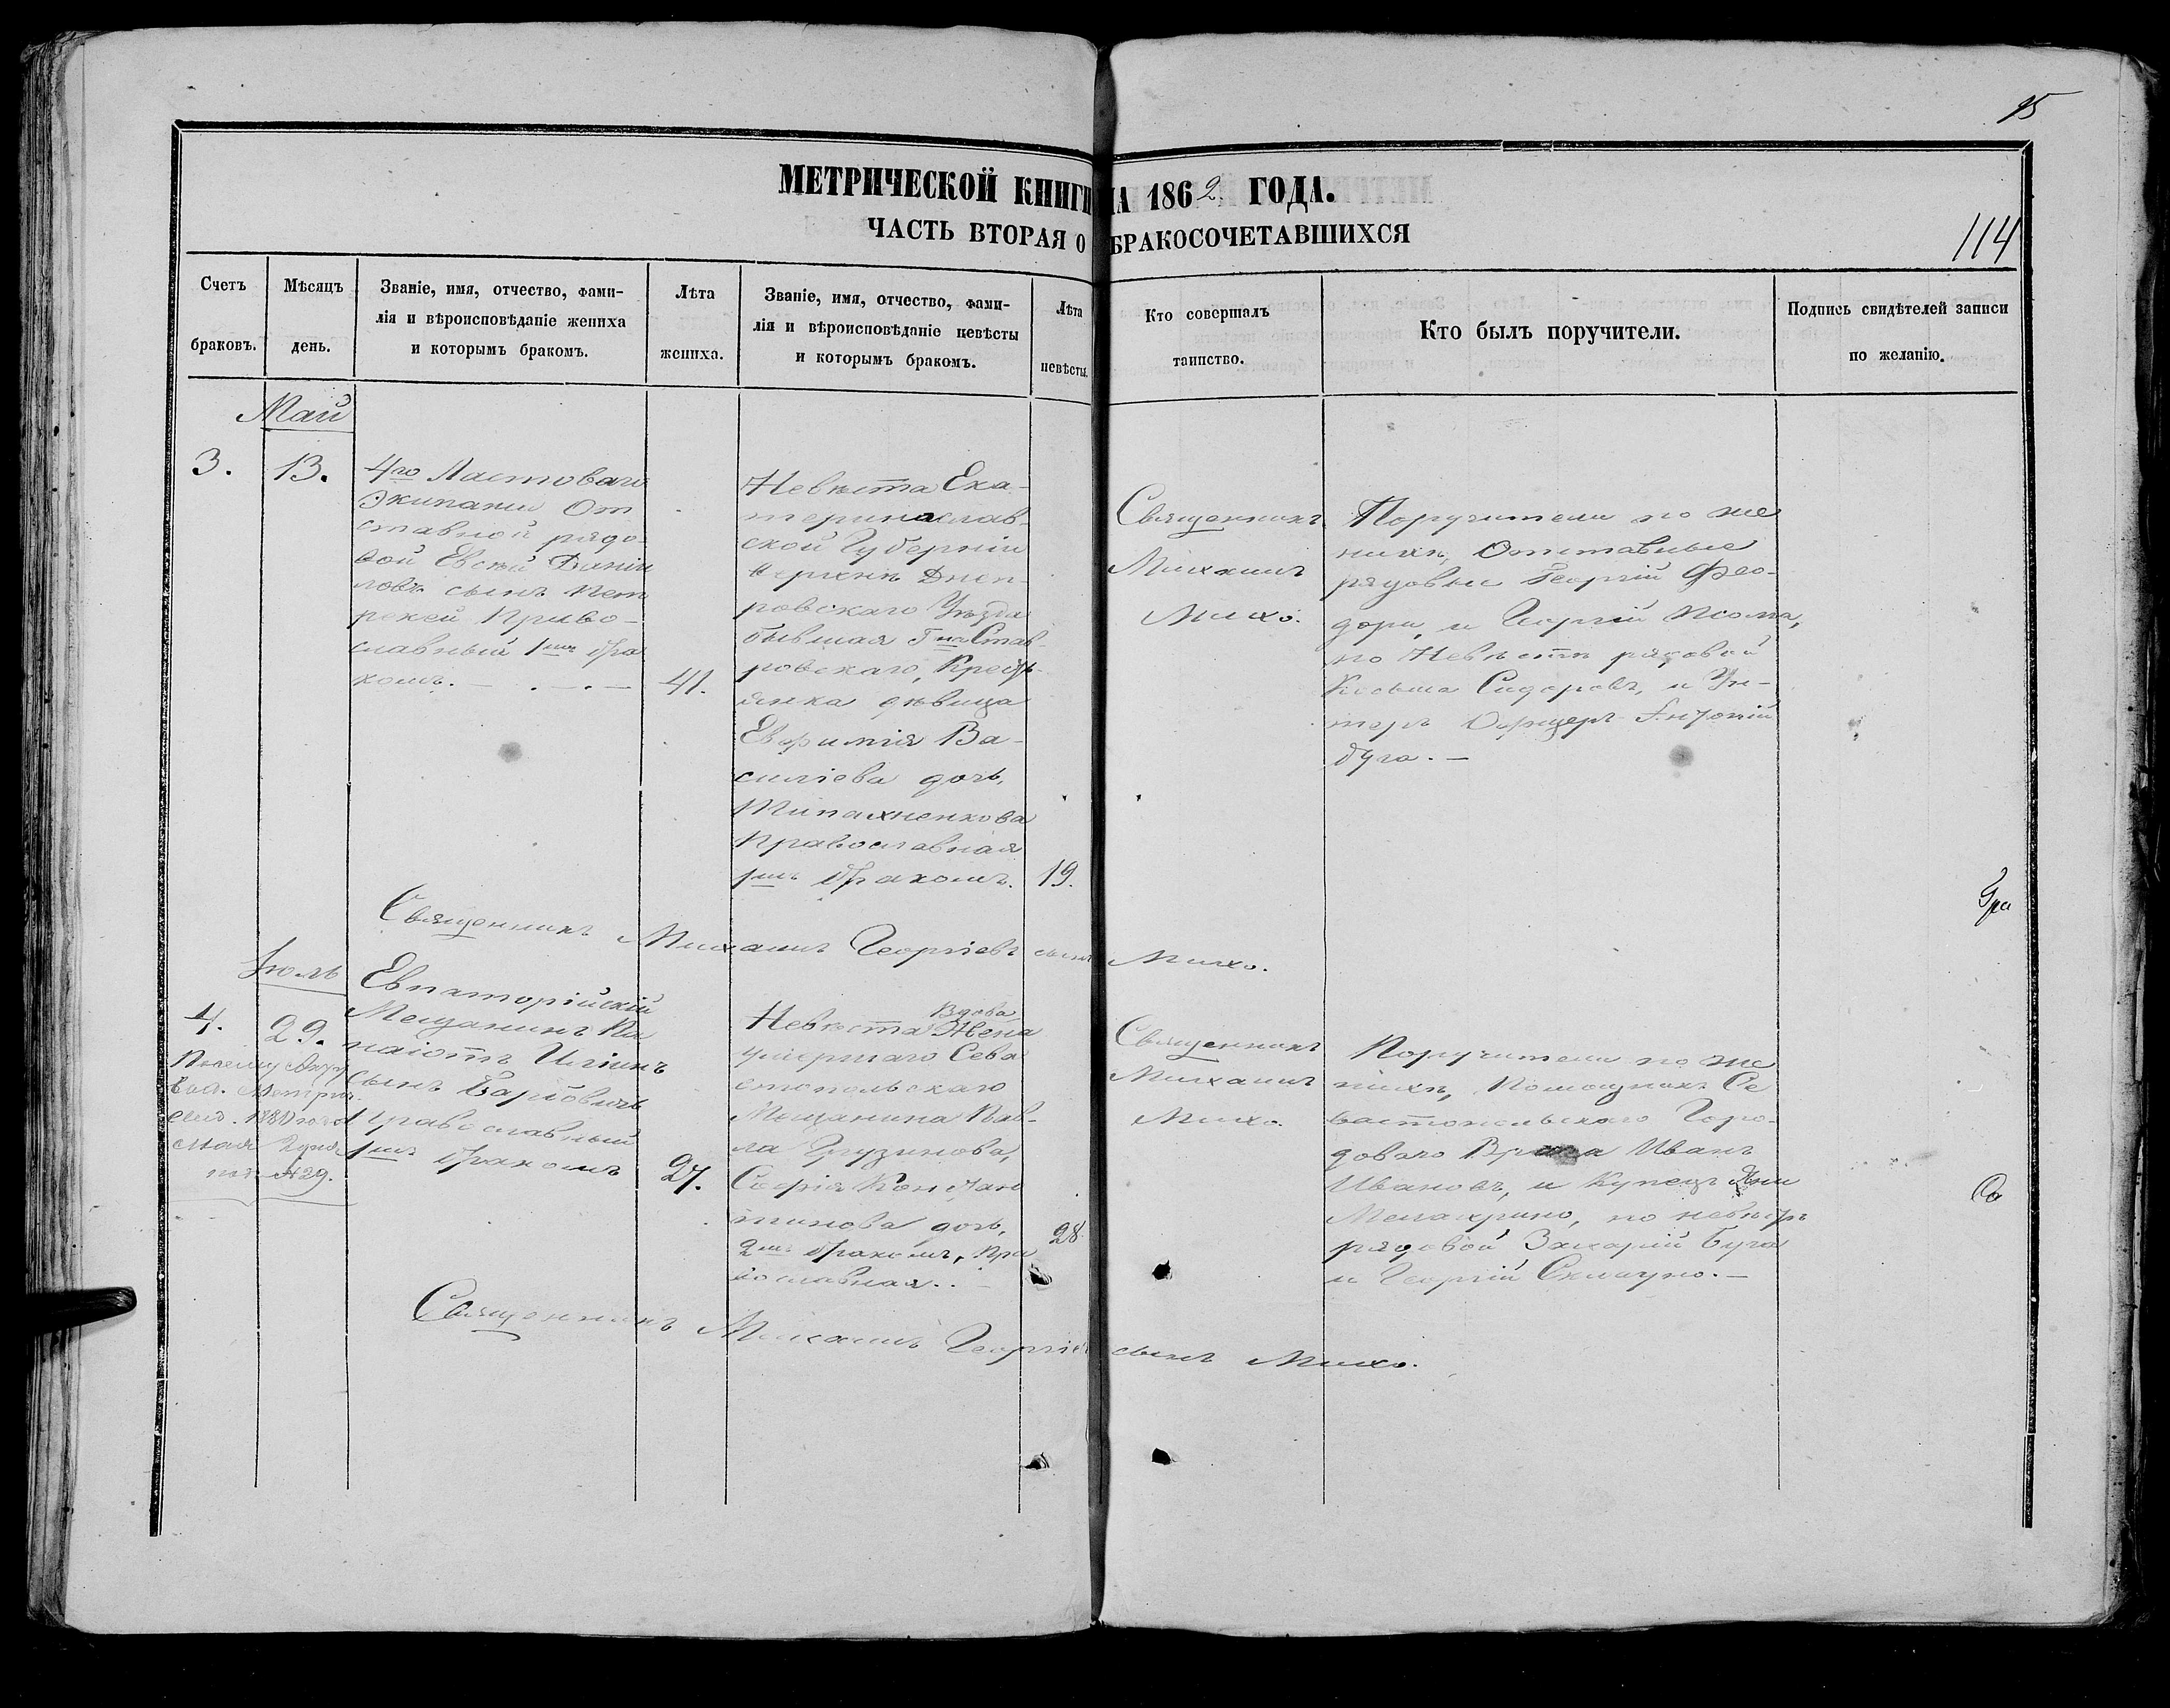 95
МЕТРИЧЕСКОЙ КНИГИ НА 1862 ГОДА.
ЧАСТЬ ВТОРАЯ О БРАКОСОЧЕТАВШИХСЯ
114
Счетъ браковъ.
Мѣсяцъ день.
Званіе, имя, отчество, фами-
лія и вѣроисповѣданіе жениха
и которымъ бракомъ.
Лѣта жениха.
Званіе, имя, отчество, фами-
лія и вѣроисповѣданіе невѣсты
и которымъ бракомъ.
Лѣта невѣсты.
Кто совершалъ
таинство.
Кто былъ поручители.
Подпись свидѣтелей записи
по желанію.
Май
3.
13.
4го Ластоваго
Экипажа От
ставной рядо-
вой Евсѣй Даніи
ловъ сынъ
Право-
славный 1мъ бра
комъ.
41.
Невѣста Ека-
теринослав-
ской Губерніи
Верхне Днеп-
ровскаго Уѣзда
бывшая Гна Став-
ровскаго, Кресть-
янка дѣвица
Евфимія Ва-
силіева дочь,
Православная
1мъ бракомъ.
19.
Священникъ
Михаилъ
Михо.
Поручители по же
нихѣ, Отставные
рядовые Георгій Фео-
дори, и Георгій
по Невѣстѣ рядовой
Козьма Сидоровъ, и Ун-
теръ Офицеръ Антоній
Буга.
Священникъ Михаилъ Георгіевъ сынъ Михо.
Іюль
4.
29.
Евпаторійскій
Мещанинъ Па
наіотъ Иліинъ
сынъ
Православный
1мъ бракомъ
27.
1880 года
№ 29.
Вдова
Невѣста Жена
умершаго Сева
стопольскаго
Мещанина Пав-
ла Грузинова,
Софія Констан
тинова дочь,
2мъ бракомъ, Пра
вославная.
28.
Священникъ
Михаилъ
Михо.
Поручители по же
нихѣ, Помощникъ Се
вастопольскаго Горо-
доваго Врача Иванъ
Ивановъ, и Купецъ Яни
по невѣстѣ
рядовой Захарій Буга
и Георгій
Священникъ Михаилъ Георгіевъ сынъ Михо.